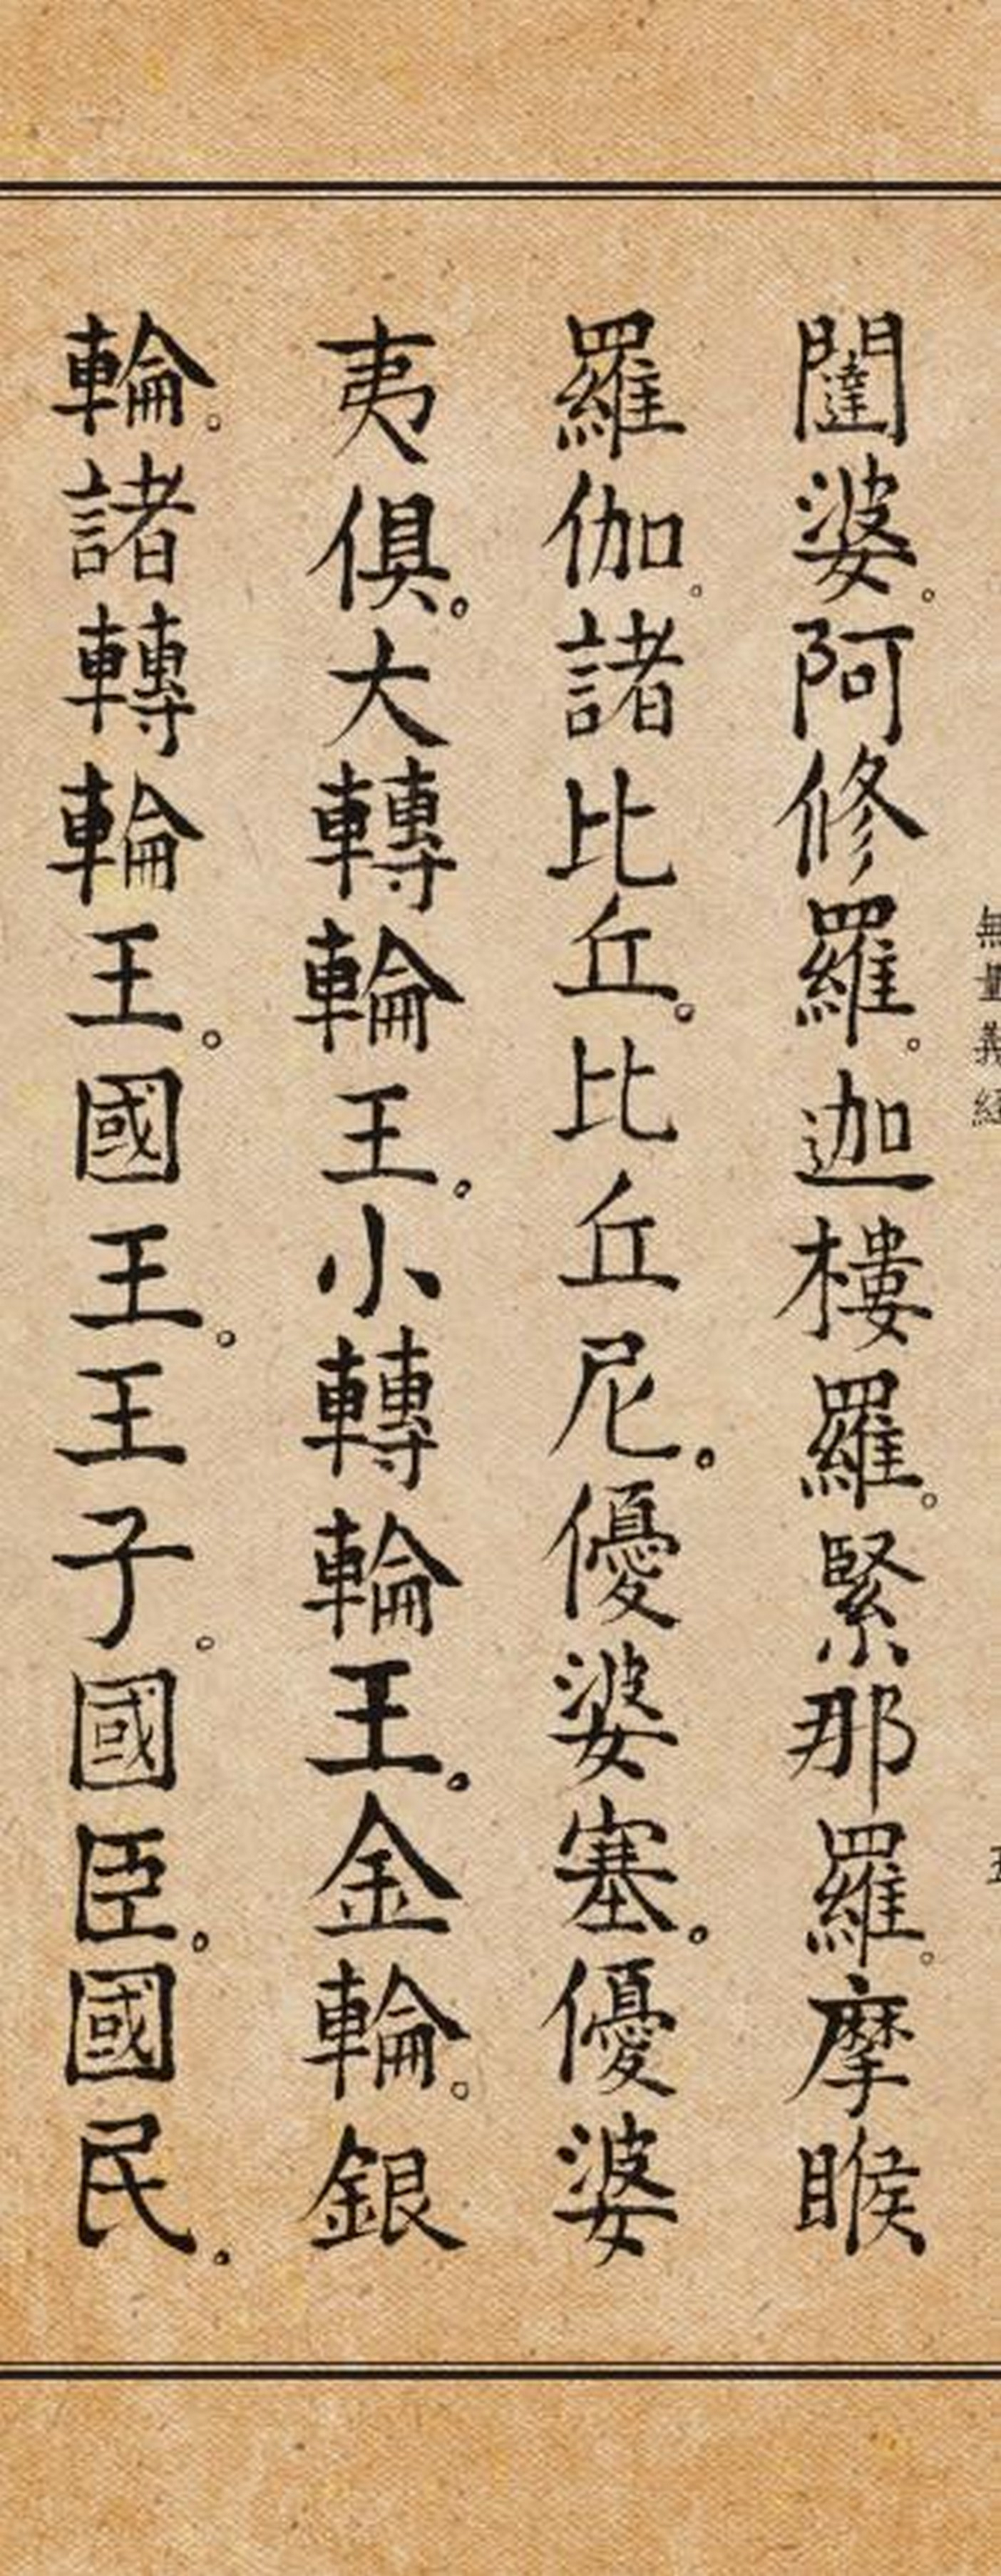 無量義經
闥婆。阿修羅。迦樓羅。緊那羅。摩睺
羅伽。諸比丘。比丘尼。優婆塞。優婆
夷俱。大轉輪王。小轉輪王。金輪。銀
輪。諸轉輪王。國王。王子。國臣。國民。